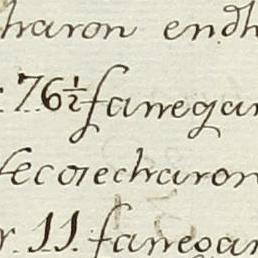 haron endh
76½ fanegar
fecojecharon
r. 11. fanegar